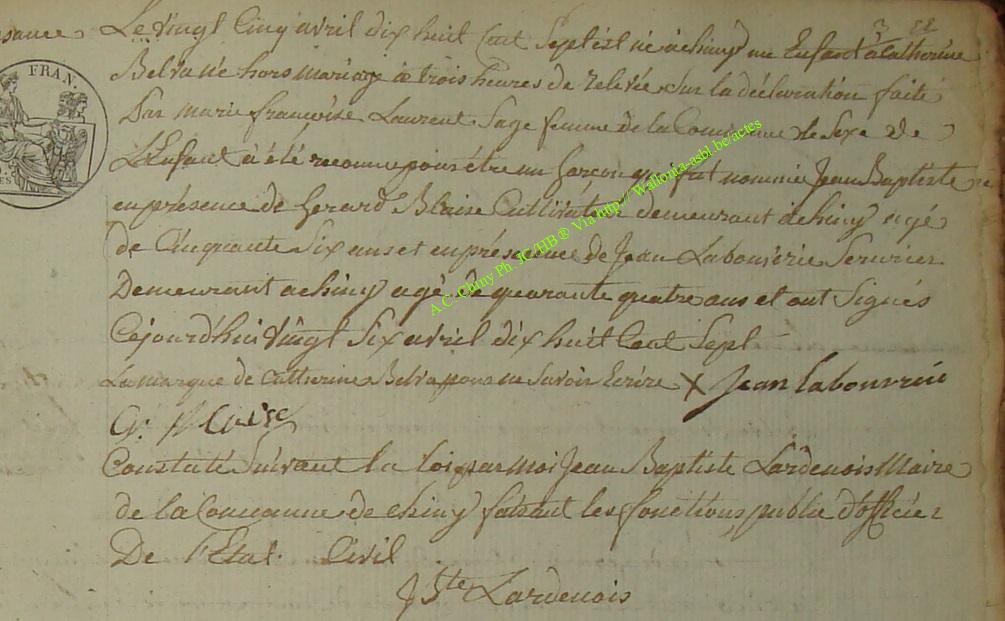 3 22
Le vingt Cinq avril dix huit Cent Sept est né a chiny un Enfant à Catherine
Belva né hors mariage a trois heures de relevée Sur la déclaration faite
Par marie françoise Laurent Sage femme de la Commune le Sexe de
L'Enfant à été reconnu pour étre un Garçon qui fut nommé Jean Baptiste
en présence de Gerard Blaise Cultivateur demeurant a chiny agé
de Cinquante Six ans et en présence de Jean Labouverie Serurier
Demeurant a chiny agé de quarante quatre ans et ont Signés
Cejourd'hui vingt Six avril dix huit Cent Sept
La marque de Catherine Belva pour ne Savoir Ecrire X Jean labouverie
G. Blaise
Constaté Suivant la loi par Moi Jean Baptiste Lardenois Maire
de la Commune de chiny faisant les fonctions public d'officier
De l'Etat Civil
J Bte Lardenois
FRAN.
A.C. Chiny Ph. JC/HB ® Via http:// Wallonia-asbl.be/actes